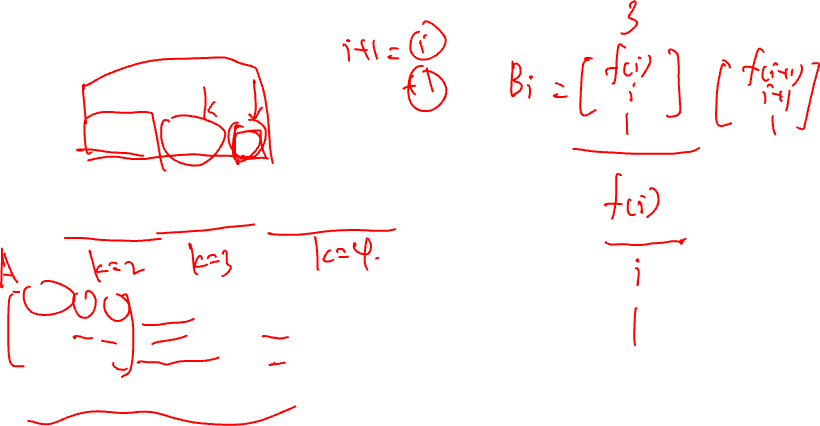 i+1 = i
+1
k
3
Bi = [ f(i) i 1 ] [ f(i+1) i+1 1 ]
f(i)
i
1
k=2 k=3 k=4.
A